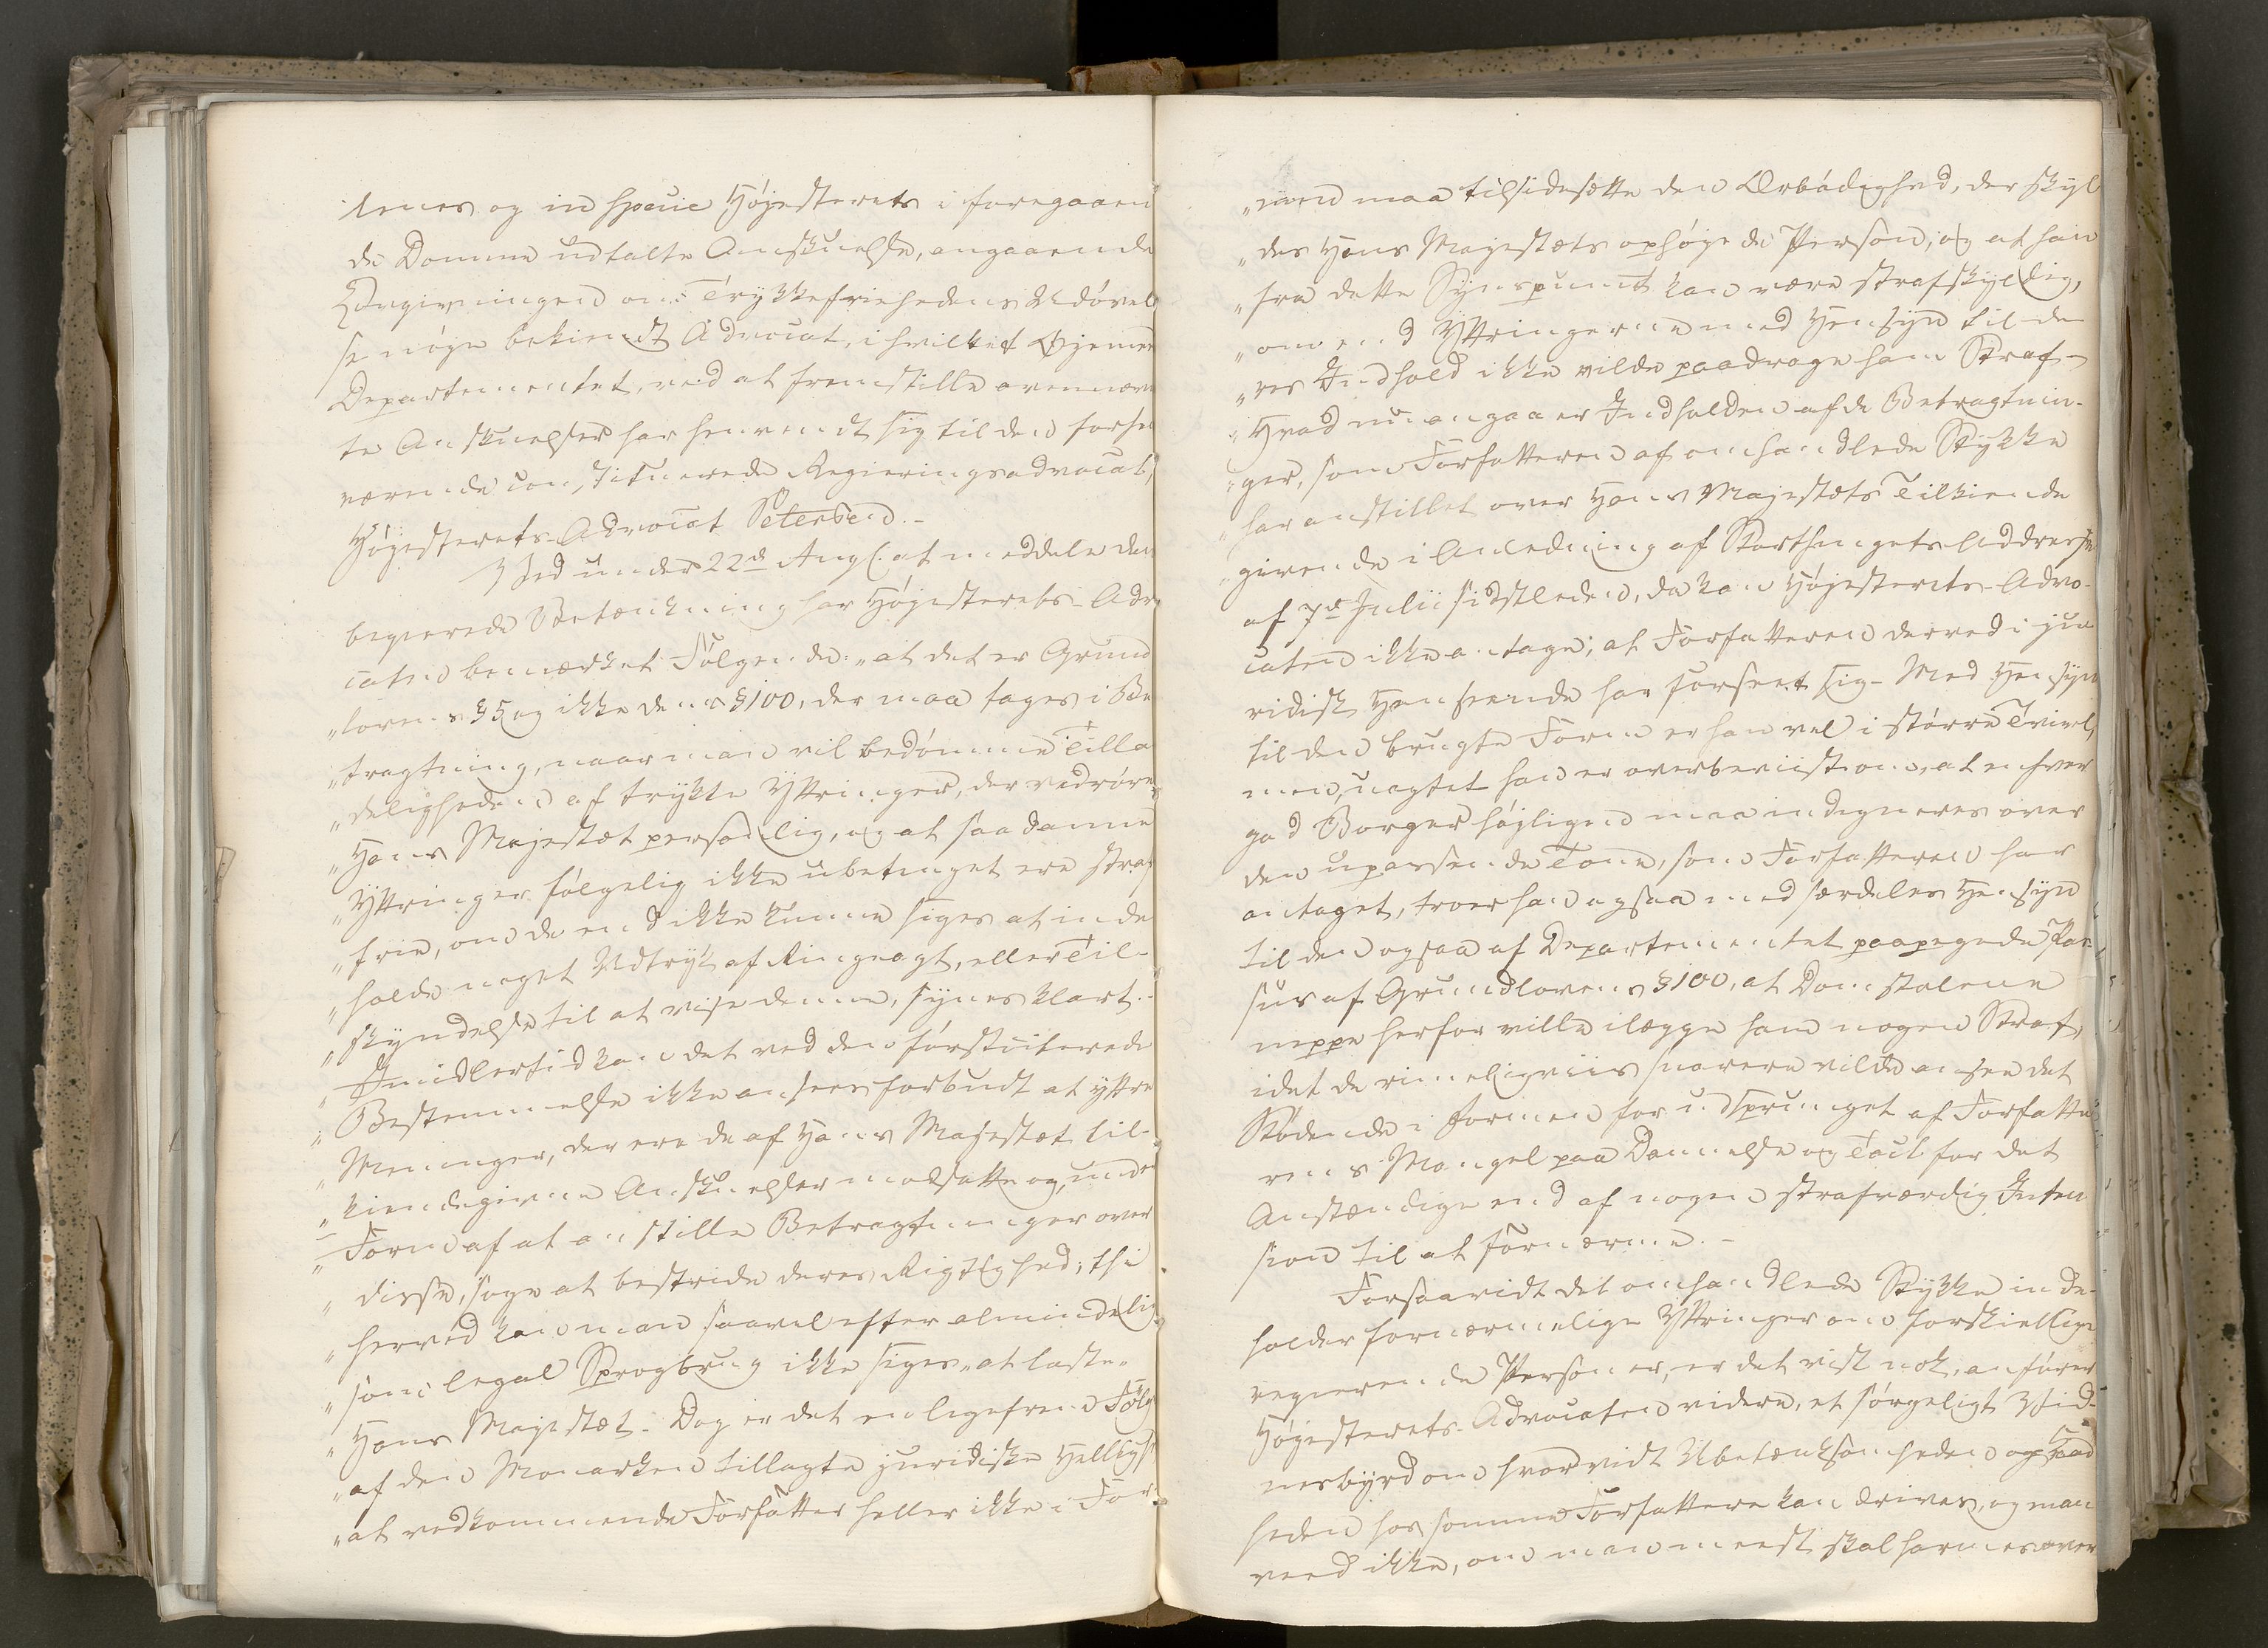 lenes og in specie Højesterets i foregaaen
de Domme udtalte Anskuelse, angaaende
Lovgivningen om Trykkefriehedens Udøvel
se nøye bekiendt Advocat, i hvilket Øjemed
Departementet, ved at fremstille ovennævn
te Anskuelser har henvendt sig til den forhen
værende constituerede Regieringsadvocat,
Højesterets-Advocat Petersen.-
Ved under 22d Aug. at meddele den
begierede Betænkning har Højesterets-Adv
caten bemærket Følgende: "at det er Grund
"lovens §5 og ikke dens §100, der maa tages i Be
"tragtning, naar man vil bedømme Tilla
"deligheden af trykte Yttringer, der vedrøre
"Hans Majestæt personlig, og at saadanne
"Yttringer følgelig ikke ubetinget ere straf
"frie, om de end ikke kunne siges at inde
"holde noget Udtryk af Ringeagt, eller Til-
"skyndelse til at vise denne, synes klart.-
"Imidlertid kan det ved den førstciterede
"Bestemmelse ikke ansees forbudt at yttre
"Meninger, der ere de af Hans Majestæt til-
"kiendegivne Anskuelser modsatte og, under
"Form af at anstille Betragtninger over
"disse, søge at bestride deres Rigtighed; thi
"herved kan man saavel efter almindelig
"som legal Sprogbrug ikke siges "at laste"
"Hans Majestæt. Dog er det en ligefrem Følg
"af den Monarken tillagte juridiske Hellighe
"at vedkommende Forfatter heller ikke i For
"men maa tilsidesætte den Ærbødighed, der skyl
"des Hans Majestæts ophøjede Person, og at han
"fra dette Synspunct kan være strafskyldig,
"om end Yttringerne med Hensyn til de
"res Indhold ikke vilde paadrage ham Straf-
"Hvad nu angaaer Indholden af de Betragtnin-
"ger, som Forfatteren af omhandlede Stykke
"har anstillet over Hans Majestæts Tilkiende
"givende i Anledning af Storthingets Addresse
af 7d Julii sidstleden, da kan Højesterets-Advo-
caten ikke antage; at Forfatteren derved i ju
ridisk Henseende har forseet sig- Med Hensyn
til den brugte Form er han vel i større Tvivl,
men, uagtet han er overbeviist om, at enhver
god Borger højligen maa indigneres over
den upassende Tone, som Forfatteren har
antaget, troer han ogsaa med særdeles Hensyn
til den ogsaa af Departementet paapegede Pas-
sus af Grundlovens §100, at Domstolene
neppe herfor ville ilægge ham nogen Straf,
idet de rimeligviis snarere vilde ansee det
Stødende i Formen for udsprunget af Forfatte
rens Mangel paa Dannelse og Tact for det
Anstændige end af nogen strafværdig Inten
sion til at fornærme.-
Forsaavidt det omhandlede Stykke inde-
holder fornærmelige Yttringer om forskiellige
regierende Personer, er det vist nok, anfører
Højesterets-Advocaten videre, et sørgeligt Vid-
nesbyrd om hvorvidt Ubetænksomheden og
heden hos somme Forfattere kan drives, og man
veed ikke, om man meest skal harmes over